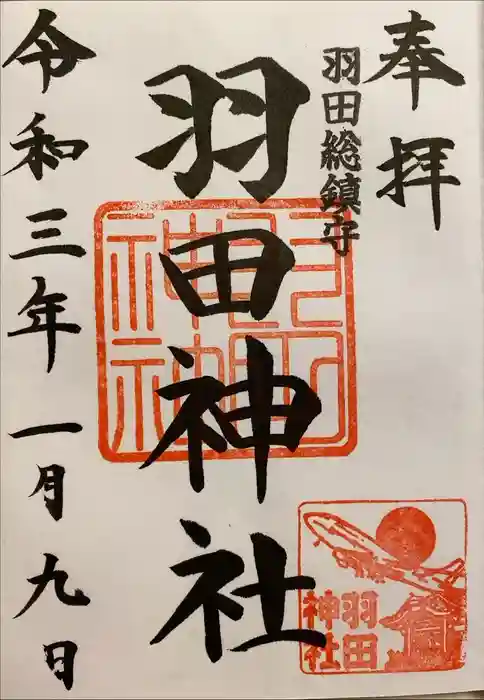 奉拝
羽田総鎮守
羽田神社
令和三年一月九日
羽田
神社